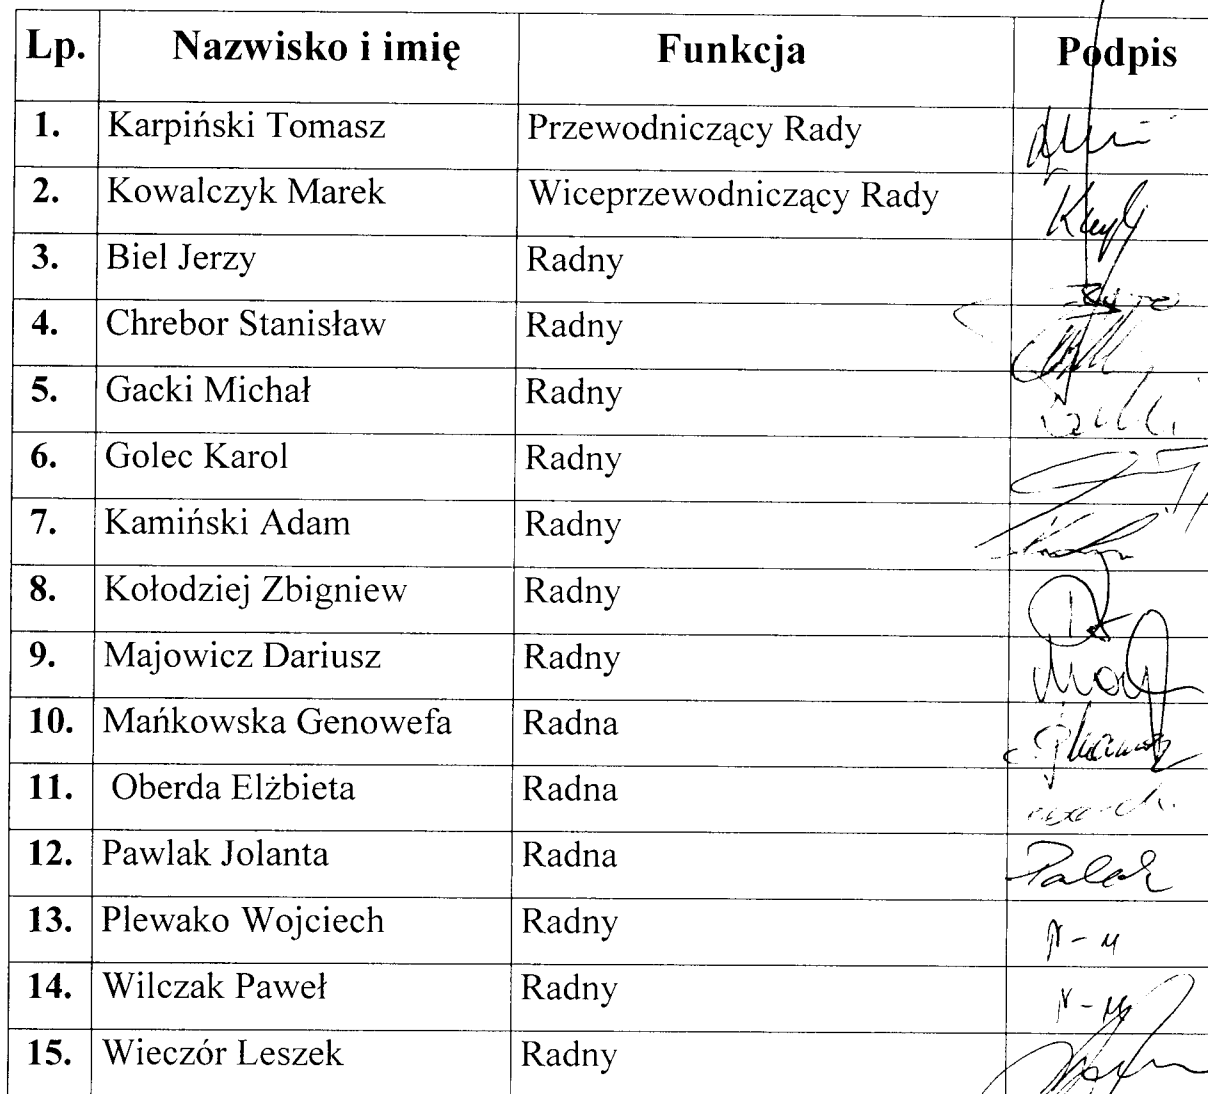 Lp. Nazwisko i imię Funkcja Podpis
1. Karpiński Tomasz Przewodniczący Rady
2. Kowalczyk Marek Wiceprzewodniczący Rady
3. Biel Jerzy Radny
4. Chrebor Stanisław Radny
5. Gacki Michał Radny
6. Golec Karol Radny
7. Kamiński Adam Radny
8. Kołodziej Zbigniew Radny
9. Majowicz Dariusz Radny
10. Mańkowska Genowefa Radna
11. Oberda Elżbieta Radna
12. Pawlak Jolanta Radna
13. Plewako Wojciech Radny
14. Wilczak Paweł Radny
15. Wieczór Leszek Radny